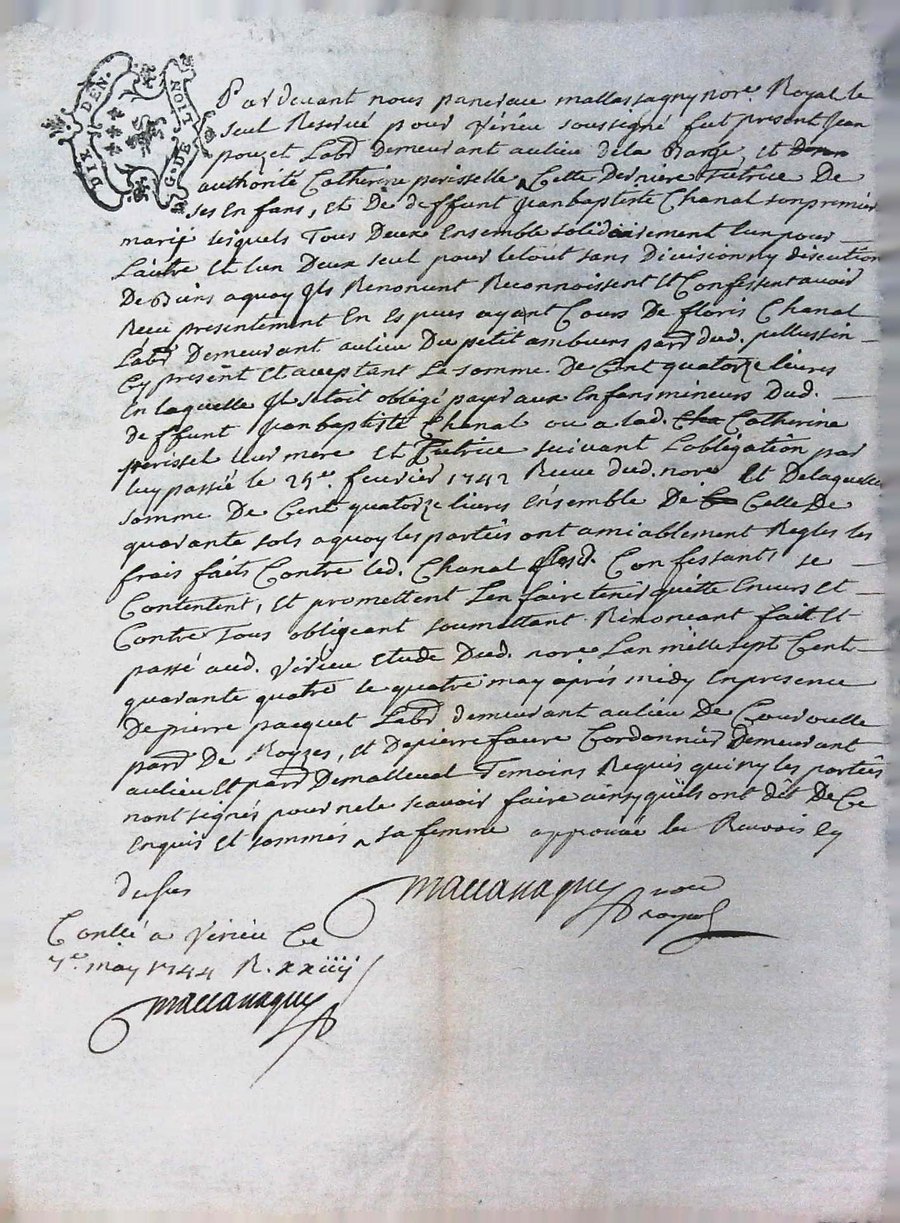 DIX DEN. G. DE NOIT
Pardevant nous pancrace mallassagny nore. Royal le
seul Reservé pour Vérieu soussigné fut present Jean
pouzet Labr Demeurant aulieu dela Barge, et
authorité Catherine perisselle ^ Cette Derniere Tutrice De
ses Enfans, et De deffunt Jeanbaptiste Chanal son premier
mary lesquels Tous Deux Ensemble solidairement lun pour
Lautre et lun Deux seul pour letout sans Division ny discution
De Biens aquoy Ils Renoncent Reconnoissent et Confessent avoir
Receu presentement En Especes ayant Cours De floris Chanal
Labr Demeurant aulieu Du petit ambuens parr dud. pellussin
Cy present et aceptant La somme De Cent quatorze livres
En laquelle Il setoit obligé payer aux Enfans mineurs Dud.
deffunt Jeanbaptiste Chanal ou a lad. Cha Catherine
perissel leur mere et Tutrice suivant Lobligation par
luy passée le 25e. fevrier 1742 Receue dud. nore et Delaquelle
somme De Cent quatorze livres Ensemble De C Celle De
quarante sols aquoy les parties ont amiablement Regles les
frais faits Contre led. Chanal Lesd. Confessants se
Contentent, et promettent Len faire tenir quitte Envers et
Contre Tous obligeant soumettant Renonceant fait et
passé aud. Vérieu Etude Dud. nore Lan mille sept Cent
quarante quatre le quatre may aprés midy En presence
De pierre pacquet Labr demeurant aulieu De Courouelle
parr De Royzes, et De pierre faure Cordonnier Demeurant
aulieu et parr De mallleval Temoins Requis qui ny les parties
nont signés pour ne le scavoir faire ainsy quils ont dit De Ce
Enquis et sommés ^ sa femme approuvé le Renvois Cy
dessus
maccanaguy nore
royal
Conllé a Vérieu Ce
7e. may 1744 R. xxiiij s
maccanaguy